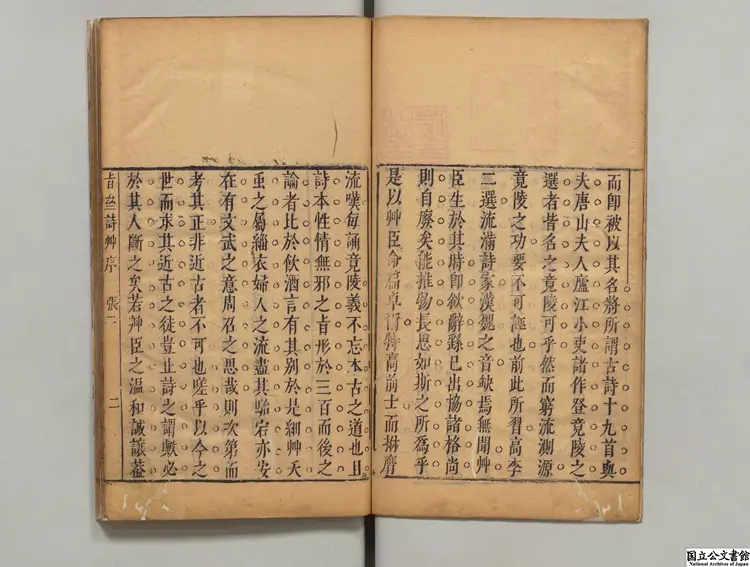 而卽被以其名將所謂古詩十九首與
夫唐山夫人廬江小吏諸作登竟陵之
選者皆名之竟陵可乎然而窮流測源
竟陵之功要不可誣也前此所習高李
二選流滿詩家漢魏之音缺焉無聞艸
臣生於其時卽欲辭繇巳出協諸格尚
則自廢矣能推物長思如斯之所爲乎
是以艸臣命篇卓爾特高前士而擀膺
流嘆每誦竟陵義不忘本古之道也且
詩本性情無邪之旨形於三百而後之
論者比於飲酒言有其別於是細艸夭
重之屬緇衣婦人之流盡其駘宕亦安
在有文武之意周召之思哉則次第而
考其正非近古者不可也嗟乎以今之
世而求其近古之徒豈止詩之謂歟必
於其人斷之矣若艸臣之溫和誠讓葢
詩艸序 張二 二
国立公文書館
National Archives of Japan